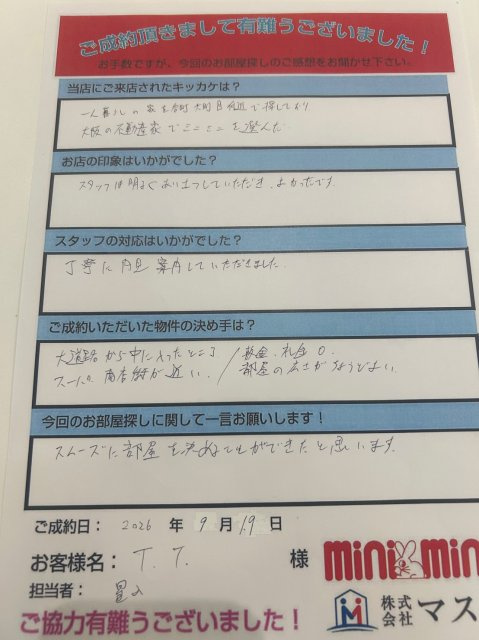 ご成約頂きまして有難うございました！
お手数ですが、今回のお部屋探しのご感想をお聞かせ下さい。
当店にご来店されたキッカケは？
一人暮しの家を本町 付近で探しており
大阪の不動産家でミニミニを選んだ
お店の印象はいかがでした？
スタッフは明るくあいさつしていただき、よかったです。
スタッフの対応はいかがでした？
丁寧に 案内していただきました。
ご成約いただいた物件の決め手は？
大道路から中に入ったところ / 敷金、礼金0.
スーパー 商店街が近い. 部屋の広さがちょうどよい
今回のお部屋探しに関して一言お願いします！
スムーズに部屋を決めてもができたと思います。
ご成約日： 2026 年 9 月 19 日
お客様名： T. T. 様
mini min
担当者：
株式会社 マス
ご協力有難うございました！